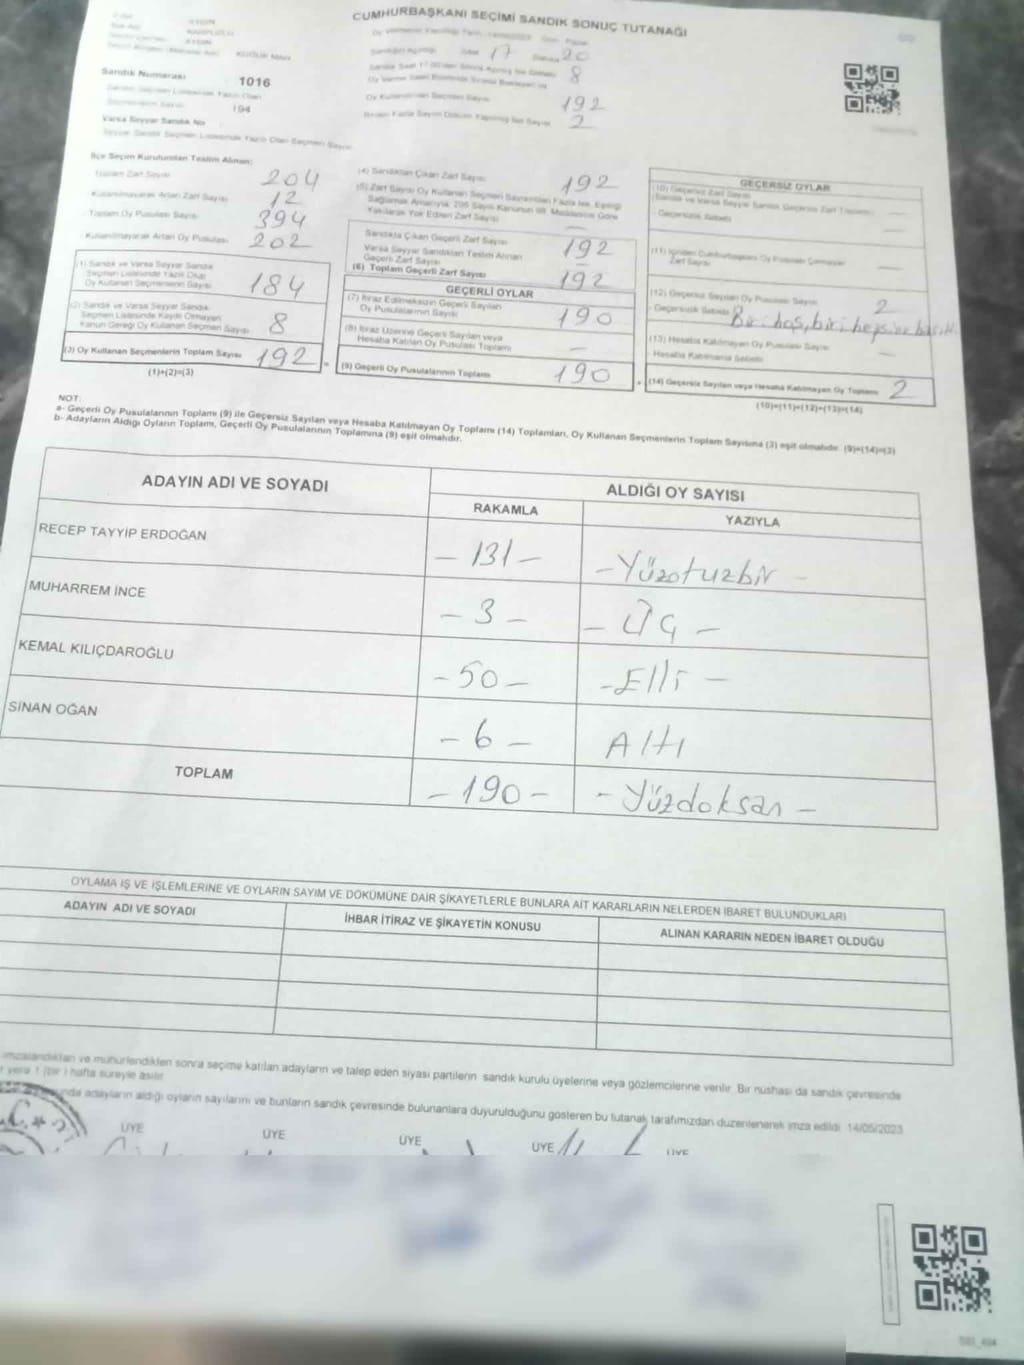 CUMHURBAŞKANI SEÇİMİ SANDIK SONUÇ TUTANAĞI
17 20
Sandık Numarası 1016
8
Oy Kullanan Seçmen Sayısı 192
194
2
Varsa Seyyar Sandık No
Seyyar Sandık Seçmen Listesinde Yazılı Olan Seçmen Sayısı
İlçe Seçim Kurulundan Teslim Alınan:
Toplam Zarf Sayısı 204
Kullanılmayarak Artan Zarf Sayısı 12
Toplam Oy Pusulası Sayısı 394
Kullanılmayarak Artan Oy Pusulası 202
(1) Sandık ve Varsa Seyyar Sandık
Seçmen Listesinde Yazılı Olup
Oy Kullanan Seçmenlerin Sayısı 184
(2) Sandık ve Varsa Seyyar Sandık
Seçmen Listesinde Kaydı Olmayan
Kanun Gereği Oy Kullanan Seçmen Sayısı 8
(3) Oy Kullanan Seçmenlerin Toplam Sayısı 192
(1)+(2)=(3)
(4) Sandıktan Çıkan Zarf Sayısı 192
(5) Zarf Sayısı Oy Kullanan Seçmen Sayısından Fazla ise, Eşitliği
Sağlamak Amacıyla, 298 Sayılı Kanunun 98. Maddesine Göre
Yakılarak Yok Edilen Zarf Sayısı —
Sandıkta Çıkan Geçerli Zarf Sayısı 192
Varsa Seyyar Sandıktan Teslim Alınan
Geçerli Zarf Sayısı —
(6) Toplam Geçerli Zarf Sayısı 192
GEÇERLİ OYLAR
(7) İtiraz Edilmeksizin Geçerli Sayılan
Oy Pusulalarının Sayısı 190
(8) İtiraz Üzerine Geçerli Sayılan veya
Hesaba Katılan Oy Pusulası Toplamı —
(9) Geçerli Oy Pusulalarının Toplamı 190
GEÇERSİZ OYLAR
(10) Geçersiz Zarf Sayısı
(Sandık ve Varsa Seyyar Sandık Geçersiz Zarf Toplamı) —
Geçersizlik Sebebi —
(11) İçinden Cumhurbaşkanı Oy Pusulası Çıkmayan
Zarf Sayısı —
(12) Geçersiz Sayılan Oy Pusulası Sayısı 2
Geçersizlik Sebebi Biri boş, biri hepsine basılı.
(13) Hesaba Katılmayan Oy Pusulası Sayısı —
Hesaba Katılmama Sebebi
(14) Geçersiz Sayılan veya Hesaba Katılmayan Oy Toplamı 2
(10)+(11)+(12)+(13)=(14)
NOT:
a- Geçerli Oy Pusulalarının Toplamı (9) ile Geçersiz Sayılan veya Hesaba Katılmayan Oy Toplamı (14) Toplamları, Oy Kullanan Seçmenlerin Toplam Sayısına (3) eşit olmalıdır. (9)+(14)=(3)
b- Adayların Aldığı Oyların Toplamı, Geçerli Oy Pusulalarının Toplamına (9) eşit olmalıdır.
ADAYIN ADI VE SOYADI ALDIĞI OY SAYISI
RAKAMLA YAZIYLA
RECEP TAYYİP ERDOĞAN - 131 - - Yüzotuzbir -
MUHARREM İNCE - 3 - - Üç -
KEMAL KILIÇDAROĞLU - 50 - - Elli -
SİNAN OĞAN - 6 - Altı
TOPLAM - 190 - - Yüzdoksan -
OYLAMA İŞ VE İŞLEMLERİNE VE OYLARIN SAYIM VE DÖKÜMÜNE DAİR ŞİKAYETLERLE BUNLARA AİT KARARLARIN NELERDEN İBARET BULUNDUKLARI
ADAYIN ADI VE SOYADI İHBAR İTİRAZ VE ŞİKAYETİN KONUSU ALINAN KARARIN NEDEN İBARET OLDUĞU
imzalandıktan ve mühürlendikten sonra seçime katılan adayların ve talep eden siyasi partilerin sandık kurulu üyelerine veya gözlemcilerine verilir. Bir nüshası da sandık çevresinde
yere 1 (bir) hafta süreyle asılır.
adayların aldığı oyların sayılarını ve bunların sandık çevresinde bulunanlara duyurulduğunu gösteren bu tutanak tarafımızdan düzenlenerek imza edildi. 14/05/2023
ÜYE ÜYE ÜYE ÜYE ÜYE